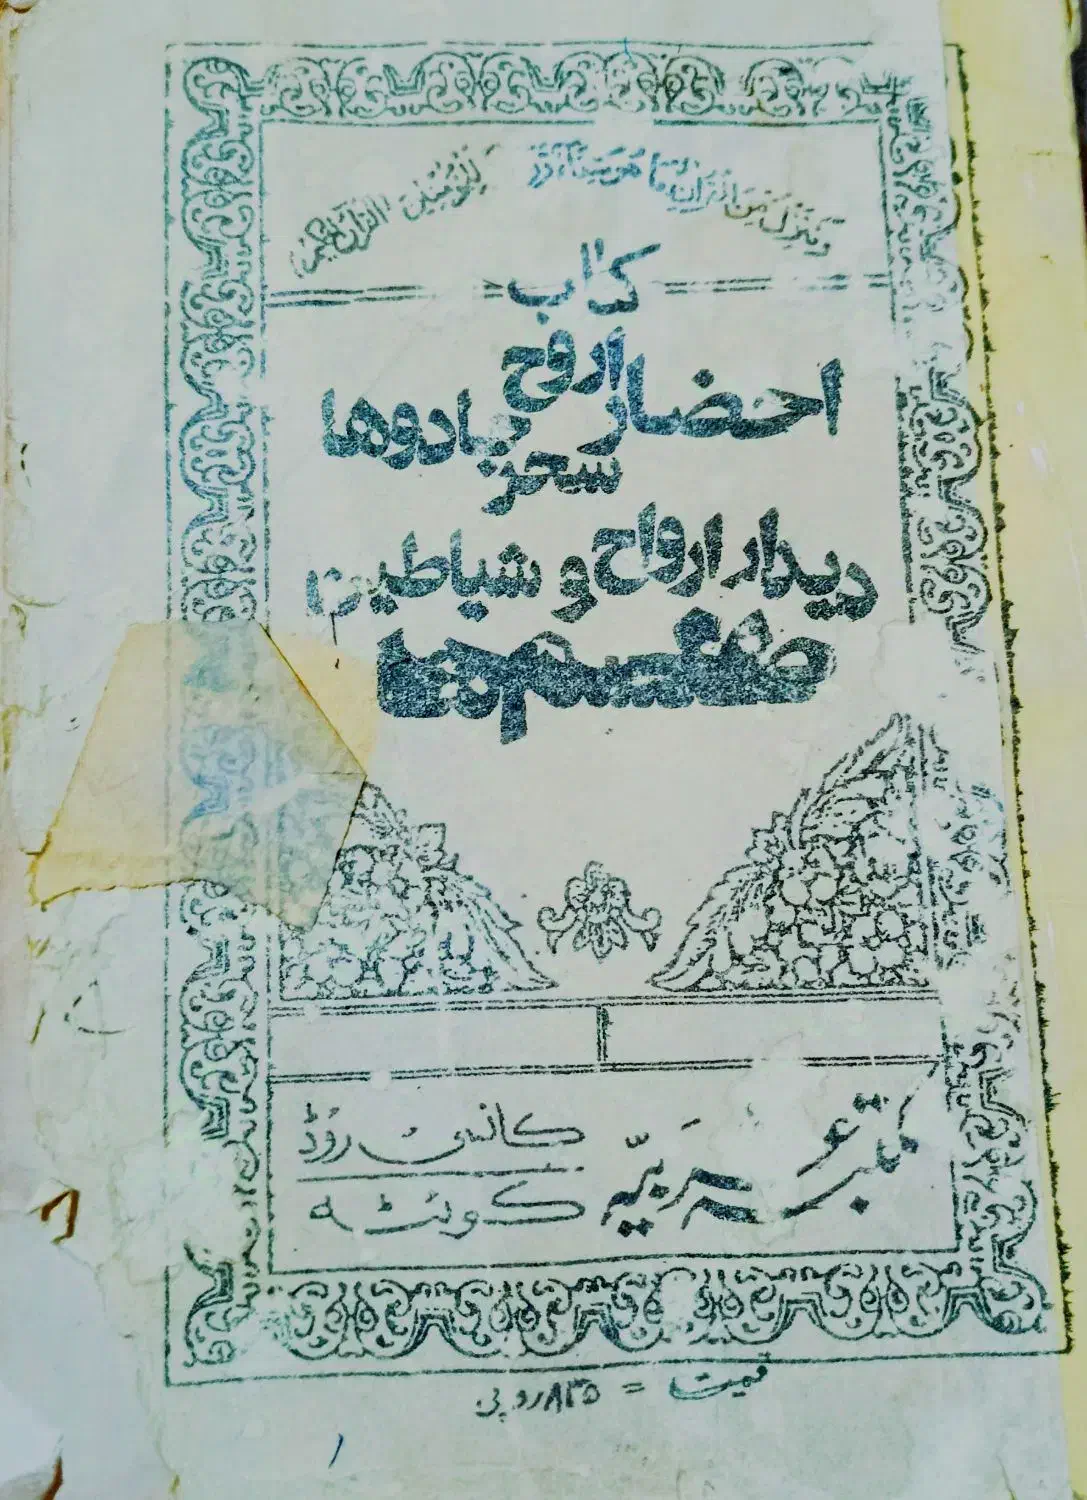 وَنُنَزِّلُ مِنَ الْقُرْآنِ مَا هُوَ شِفَاءٌ وَرَحْمَةٌ لِلْمُؤْمِنِينَ القرآن الکریم
کتاب
احضار اروح
سحر جادوها
دیدار ارواح و شیاطین
طلسم ها
مکتبہ عربیّہ
کانسی روڈ
کوئٹہ
قیمت = ۸۳۵ روپی